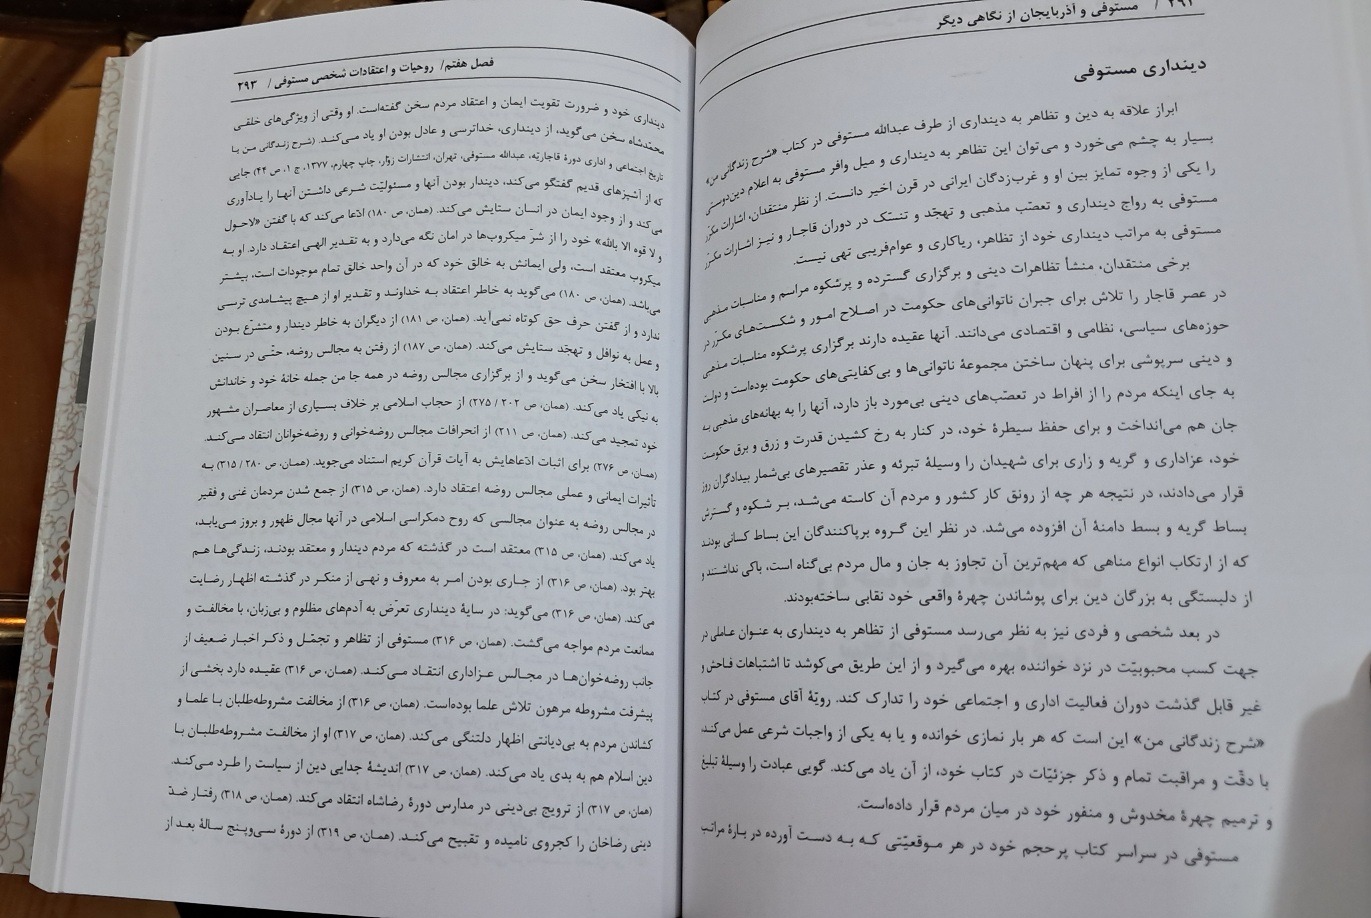 ۲۹۲ / مستوفی و آذربایجان از نگاهی دیگر
دینداری مستوفی
ابراز علاقه به دین و تظاهر به دینداری از طرف عبدالله مستوفی در کتاب «شرح زندگانی من»
بسیار به چشم می‌خورد و می‌توان این تظاهر به دینداری و میل وافر مستوفی به اعلام دین‌دوستی
را یکی از وجوه تمایز بین او و غرب‌زدگان ایرانی در قرن اخیر دانست. از نظر منتقدان، اشارات مکرّر
مستوفی به رواج دینداری و تعصّب مذهبی و تهجّد و تنسّک در دوران قاجار و نیز اشارات مکرّر
مستوفی به مراتب دینداری خود از تظاهر، ریاکاری و عوام‌فریبی تهی نیست.
برخی منتقدان، منشأ تظاهرات دینی و برگزاری گسترده و پرشکوه مراسم و مناسبات مذهبی
در عصر قاجار را تلاش برای جبران ناتوانی‌های حکومت در اصلاح امور و شکست‌های مکرّر در
حوزه‌های سیاسی، نظامی و اقتصادی می‌دانند. آنها عقیده دارند برگزاری پرشکوه مناسبات مذهبی
و دینی سرپوشی برای پنهان ساختن مجموعهٔ ناتوانی‌ها و بی‌کفایتی‌های حکومت بوده‌است و دولت
به جای اینکه مردم را از افراط در تعصّب‌های دینی بی‌مورد باز دارد، آنها را به بهانه‌های مذهبی به
جان هم می‌انداخت و برای حفظ سیطرهٔ خود، در کنار به رخ کشیدن قدرت و زرق و برق حکومت
خود، عزاداری و گریه و زاری برای شهیدان را وسیلهٔ تبرئه و عذر تقصیرهای بی‌شمار بیدادگران روز
قرار می‌دادند، در نتیجه هر چه از رونق کار کشور و مردم آن کاسته می‌شد، بر شکوه و گسترش
بساط گریه و بسط دامنهٔ آن افزوده می‌شد. در نظر این گروه برپاکنندگان این بساط کسانی بودند
که از ارتکاب انواع مناهی که مهم‌ترین آن تجاوز به جان و مال مردم بی‌گناه است، باکی نداشتند و
از دلبستگی به بزرگان دین برای پوشاندن چهرهٔ واقعی خود نقابی ساخته‌بودند.
در بعد شخصی و فردی نیز به نظر می‌رسد مستوفی از تظاهر به دینداری به عنوان عاملی در
جهت کسب محبوبیّت در نزد خواننده بهره می‌گیرد و از این طریق می‌کوشد تا اشتباهات فاحش و
غیر قابل گذشت دوران فعالیت اداری و اجتماعی خود را تدارک کند. رویّهٔ آقای مستوفی در کتاب
«شرح زندگانی من» این است که هر بار نمازی خوانده و یا به یکی از واجبات شرعی عمل می‌کند،
با دقّت و مراقبت تمام و ذکر جزئیّات در کتاب خود، از آن یاد می‌کند. گویی عبادت را وسیلهٔ تبلیغ
و ترمیم چهرهٔ مخدوش و منفور خود در میان مردم قرار داده‌است.
مستوفی در سراسر کتاب پرحجم خود در هر موقعیّتی که به دست آورده در بارهٔ مراتب
فصل هفتم/ روحیات و اعتقادات شخصی مستوفی / ۲۹۳
دینداری خود و ضرورت تقویت ایمان و اعتقاد مردم سخن گفته‌است. او وقتی از ویژگی‌های خلقی
محمّدشاه سخن می‌گوید، از دینداری، خداترسی و عادل بودن او یاد می‌کند. (شرح زندگانی من یا
تاریخ اجتماعی و اداری دورهٔ قاجاریّه، عبدالله مستوفی، تهران، انتشارات زوّار، چاپ چهارم، ۱۳۷۷، ج ۱، ص ۴۴) جایی
که از آشپزهای قدیم گفتگو می‌کند، دیندار بودن آنها و مسئولیّت شرعی داشتن آنها را یادآوری
می‌کند و از وجود ایمان در انسان ستایش می‌کند. (همان، ص ۱۸۰) ادّعا می‌کند که با گفتن «لاحول
و لا قوه الا بالله» خود را از شرّ میکروب‌ها در امان نگه می‌دارد و به تقدیر الهی اعتقاد دارد. او به
میکروب معتقد است، ولی ایمانش به خالق خود که در آن واحد خالق تمام موجودات است، بیشتر
می‌باشد. (همان، ص ۱۸۰) می‌گوید به خاطر اعتقاد به خداوند و تقدیر او از هیچ پیشامدی ترسی
ندارد و از گفتن حرف حق کوتاه نمی‌آید. (همان، ص ۱۸۱) از دیگران به خاطر دیندار و متشرّع بودن
و عمل به نوافل و تهجّد ستایش می‌کند. (همان، ص ۱۸۷) از رفتن به مجالس روضه، حتّی در سنین
بالا با افتخار سخن می‌گوید و از برگزاری مجالس روضه در همه جا من جمله خانهٔ خود و خاندانش
به نیکی یاد می‌کند. (همان، ص ۲۰۲ / ۲۷۵) از حجاب اسلامی بر خلاف بسیاری از معاصران مشهور
خود تمجید می‌کند. (همان، ص ۲۱۱) از انحرافات مجالس روضه‌خوانی و روضه‌خوانان انتقاد می‌کند.
(همان، ص ۲۷۶) برای اثبات ادّعاهایش به آیات قرآن کریم استناد می‌جوید. (همان، ص ۲۸۰ / ۳۱۵) به
تأثیرات ایمانی و عملی مجالس روضه اعتقاد دارد. (همان، ص ۳۱۵) از جمع شدن مردمان غنی و فقیر
در مجالس روضه به عنوان مجالسی که روح دمکراسی اسلامی در آنها مجال ظهور و بروز می‌یابد،
یاد می‌کند. (همان، ص ۳۱۵) معتقد است در گذشته که مردم دیندار و معتقد بودند، زندگی‌ها هم
بهتر بود. (همان، ص ۳۱۶) از جاری بودن امر به معروف و نهی از منکر در گذشته اظهار رضایت
می‌کند. (همان، ص ۳۱۶) می‌گوید: در سایهٔ دینداری تعرّض به آدم‌های مظلوم و بی‌زبان، با مخالفت و
ممانعت مردم مواجه می‌گشت. (همان، ص ۳۱۶) مستوفی از تظاهر و تجمّل و ذکر اخبار ضعیف از
جانب روضه‌خوان‌ها در مجالس عزاداری انتقاد می‌کند. (همان، ص ۳۱۶) عقیده دارد بخشی از
پیشرفت مشروطه مرهون تلاش علما بوده‌است. (همان، ص ۳۱۶) از مخالفت مشروطه‌طلبان با علما و
کشاندن مردم به بی‌دیانتی اظهار دلتنگی می‌کند. (همان، ص ۳۱۷) او از مخالفت مشروطه‌طلبان با
دین اسلام هم به بدی یاد می‌کند. (همان، ص ۳۱۷) اندیشهٔ جدایی دین از سیاست را طرد می‌کند.
(همان، ص ۳۱۷) از ترویج بی‌دینی در مدارس دورهٔ رضاشاه انتقاد می‌کند. (همان، ص ۳۱۸) رفتار ضدّ
دینی رضاخان را کجروی نامیده و تقبیح می‌کند. (همان، ص ۳۱۹) از دورهٔ سی‌وپنج سالهٔ بعد از